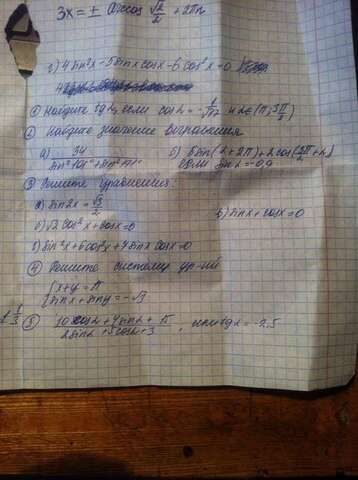 3x = ± arccos √2/2 + 2πn
г) 4 sin²x - 5 sinx cosx - 6 cos²x = 0
① Найдите tg α, если cos α = - 1/√17 и α ∈ (π; 3π/2)
② Найдите значение выражения
а) 34/(sin² 101° + sin² 191°) б) 5 sin(α + 2π) + 2 cos(3π/2 + α)
если sin α = -0,9
③ Решите уравнения:
а) sin 2x = √3/2
б) √2 cos²x + cosx = 0 в) sinx + cosx = 0
г) sin²x + 6 cos²x + 4 sinx cosx = 0
④ Решите систему ур-ий
{x + y = π
{sinx + siny = -√3
⑤ (10 cos α + 4 sin α + 15)/(2 sin α + 5 cos α + 3), если tg α = -2,5